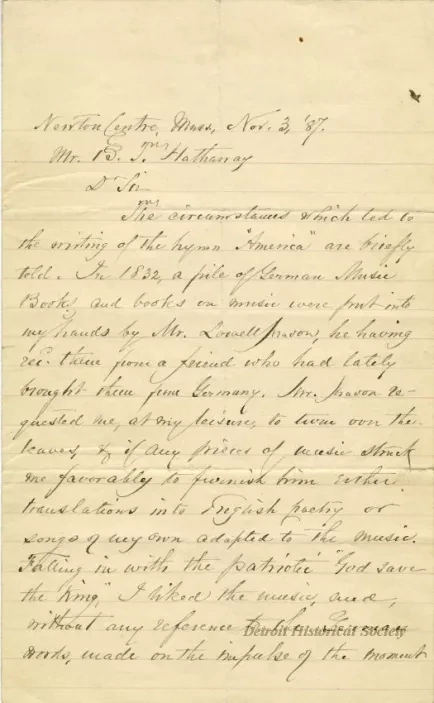 Newton Centre, Mass, Nov. 3, '87.
Mr. B. T. Hathaway
Dr Sir
The circumstances which led to
the writing of the hymn "America" are briefly
told. In 1832, a pile of German Music
Books and books on music were put into
my hands by Mr. Lowell Mason, he having
rec. them from a friend who had lately
brought them from Germany. Mr. Mason re-
quested me, at my leisure, to turn over the
leaves, & if any pieces of music struck
me favorably to furnish him either
translations into English poetry or
songs of my own adapted to the music.
Falling in with the patriotic "God save
the King," I liked the music, and,
without any reference to the German
words, made on the impulse of the moment
Detroit Historical Society